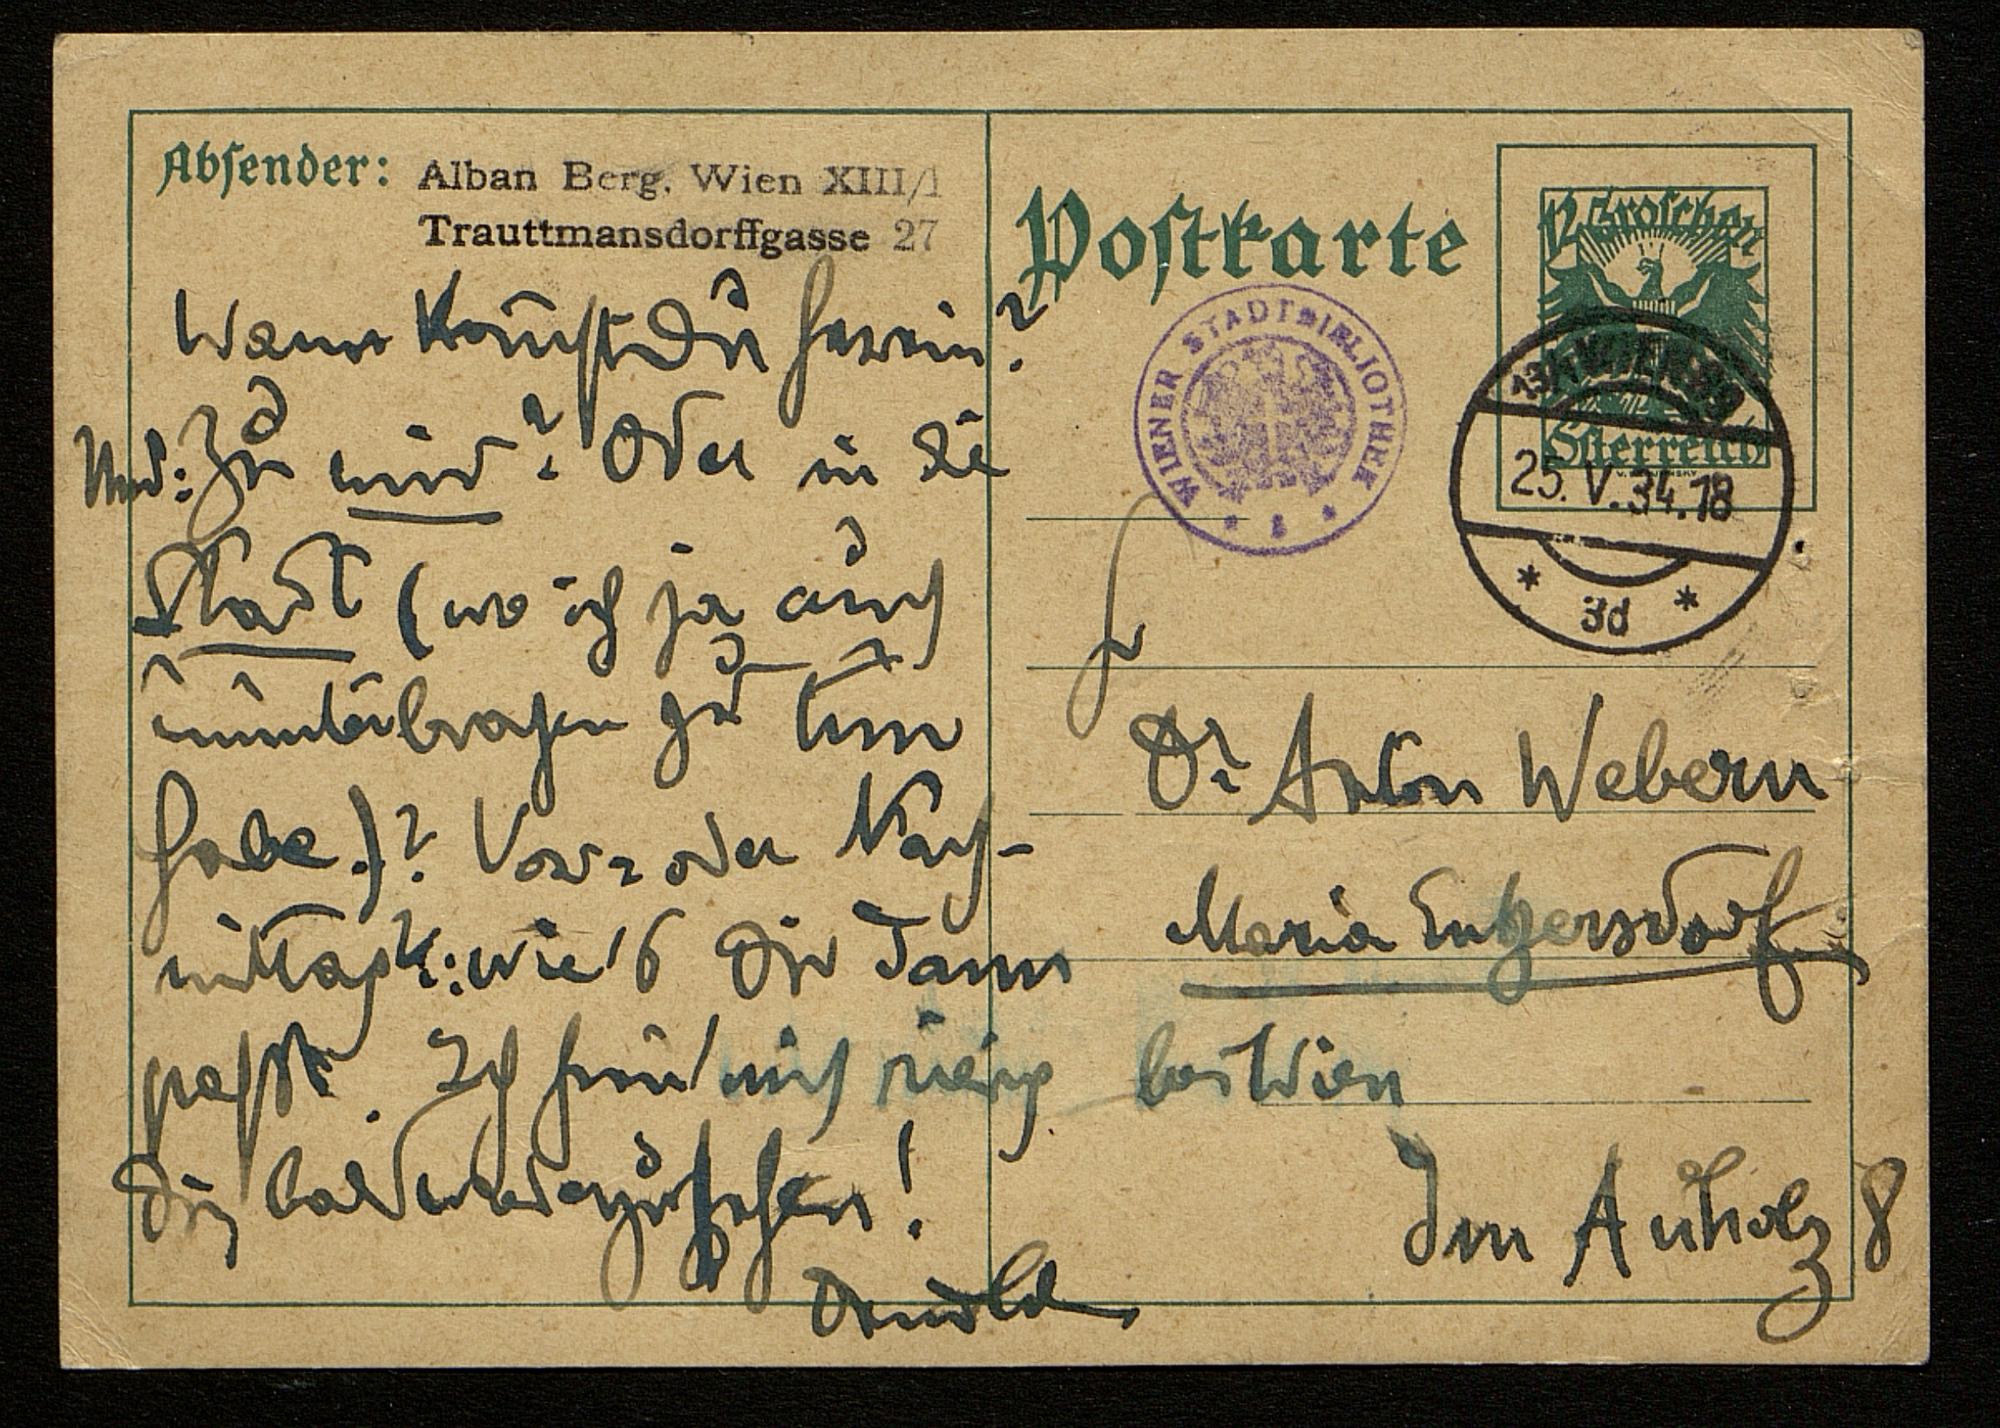 Absender: Alban Berg, Wien XIII/1
Trauttmansdorffgasse 27
Wann kom̄st Du herein?
Und: Zu mir? Oder in die
Stadt (wo ich ja auch
zu tun
habe.)? Vor= oder Nach-
mittags?: wie's Dir dann
passt. Ich freu' mich riesig
Dich bald wiederzusehen!
Postkarte
12 Groschen
Österreich
WIENER STADTBIBLIOTHEK
25.V.34.18
* 3d *
Dr Anton Webern
Maria Enzersdorf
bei Wien
Im Auholz 8